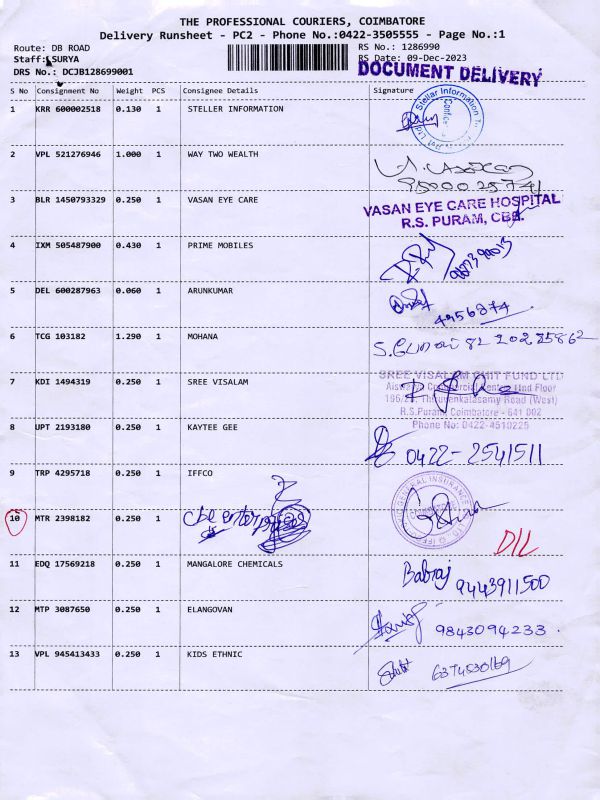 THE PROFESSIONAL COURIERS, COIMBATORE
Delivery Runsheet - PC2 - Phone No.:0422-3505555 - Page No.:1
Route: DB ROAD RS No.: 1286990
Staff: SURYA RS Date: 09-Dec-2023
DRS No.: DCJB128699001 DOCUMENT DELIVERY
S No Consignment No Weight PCS Consignee Details Signature
1 KRR 600002518 0.130 1 STELLER INFORMATION
Stellar Information
2 VPL 521276946 1.000 1 WAY TWO WEALTH
3 BLR 1450793329 0.250 1 VASAN EYE CARE
VASAN EYE CARE HOSPITAL
R.S. PURAM, CBE.
4 IXM 505487900 0.430 1 PRIME MOBILES
5 DEL 600287963 0.060 1 ARUNKUMAR
4956874
6 TCG 103182 1.290 1 MOHANA
7 KDI 1494319 0.250 1 SREE VISALAM
SREE VISALAM CHIT FUND LTD
Commercial Centre IInd Floor
Road (West)
R.S.Puram, Coimbatore - 641 002
Phone No: 0422-4510225
8 UPT 2193180 0.250 1 KAYTEE GEE
0422-2541511
9 TRP 4295718 0.250 1 IFFCO
GENERAL INSURANCE
10 MTR 2398182 0.250 1
DIL
11 EDQ 17569218 0.250 1 MANGALORE CHEMICALS
Babraj 9443911500
12 MTP 3087650 0.250 1 ELANGOVAN
9843094233
13 VPL 945413433 0.250 1 KIDS ETHNIC
6374530169